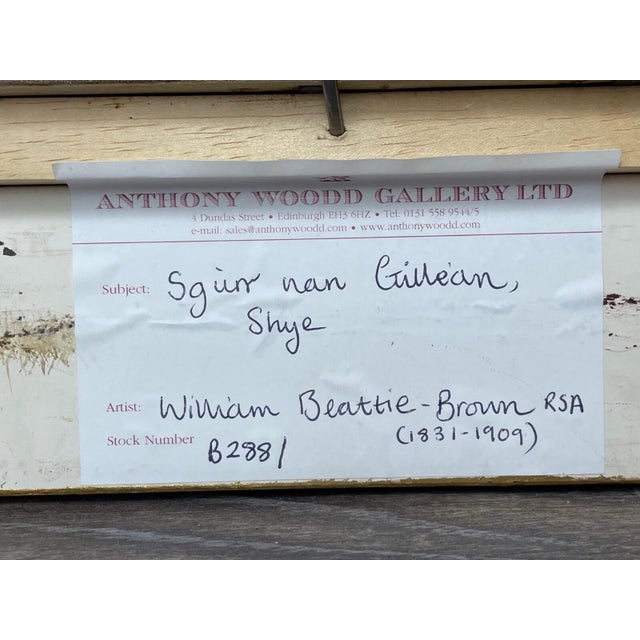 ANTHONY WOODD GALLERY LTD
4 Dundas Street • Edinburgh EH3 6HZ • Tel: 0131 558 9544/5
e-mail: sales@anthonywoodd.com • www.anthonywoodd.com
Subject: Sgùrr nan Gilléan,
Skye
Artist: William Beattie-Brown RSA
(1831-1909)
Stock Number B288/